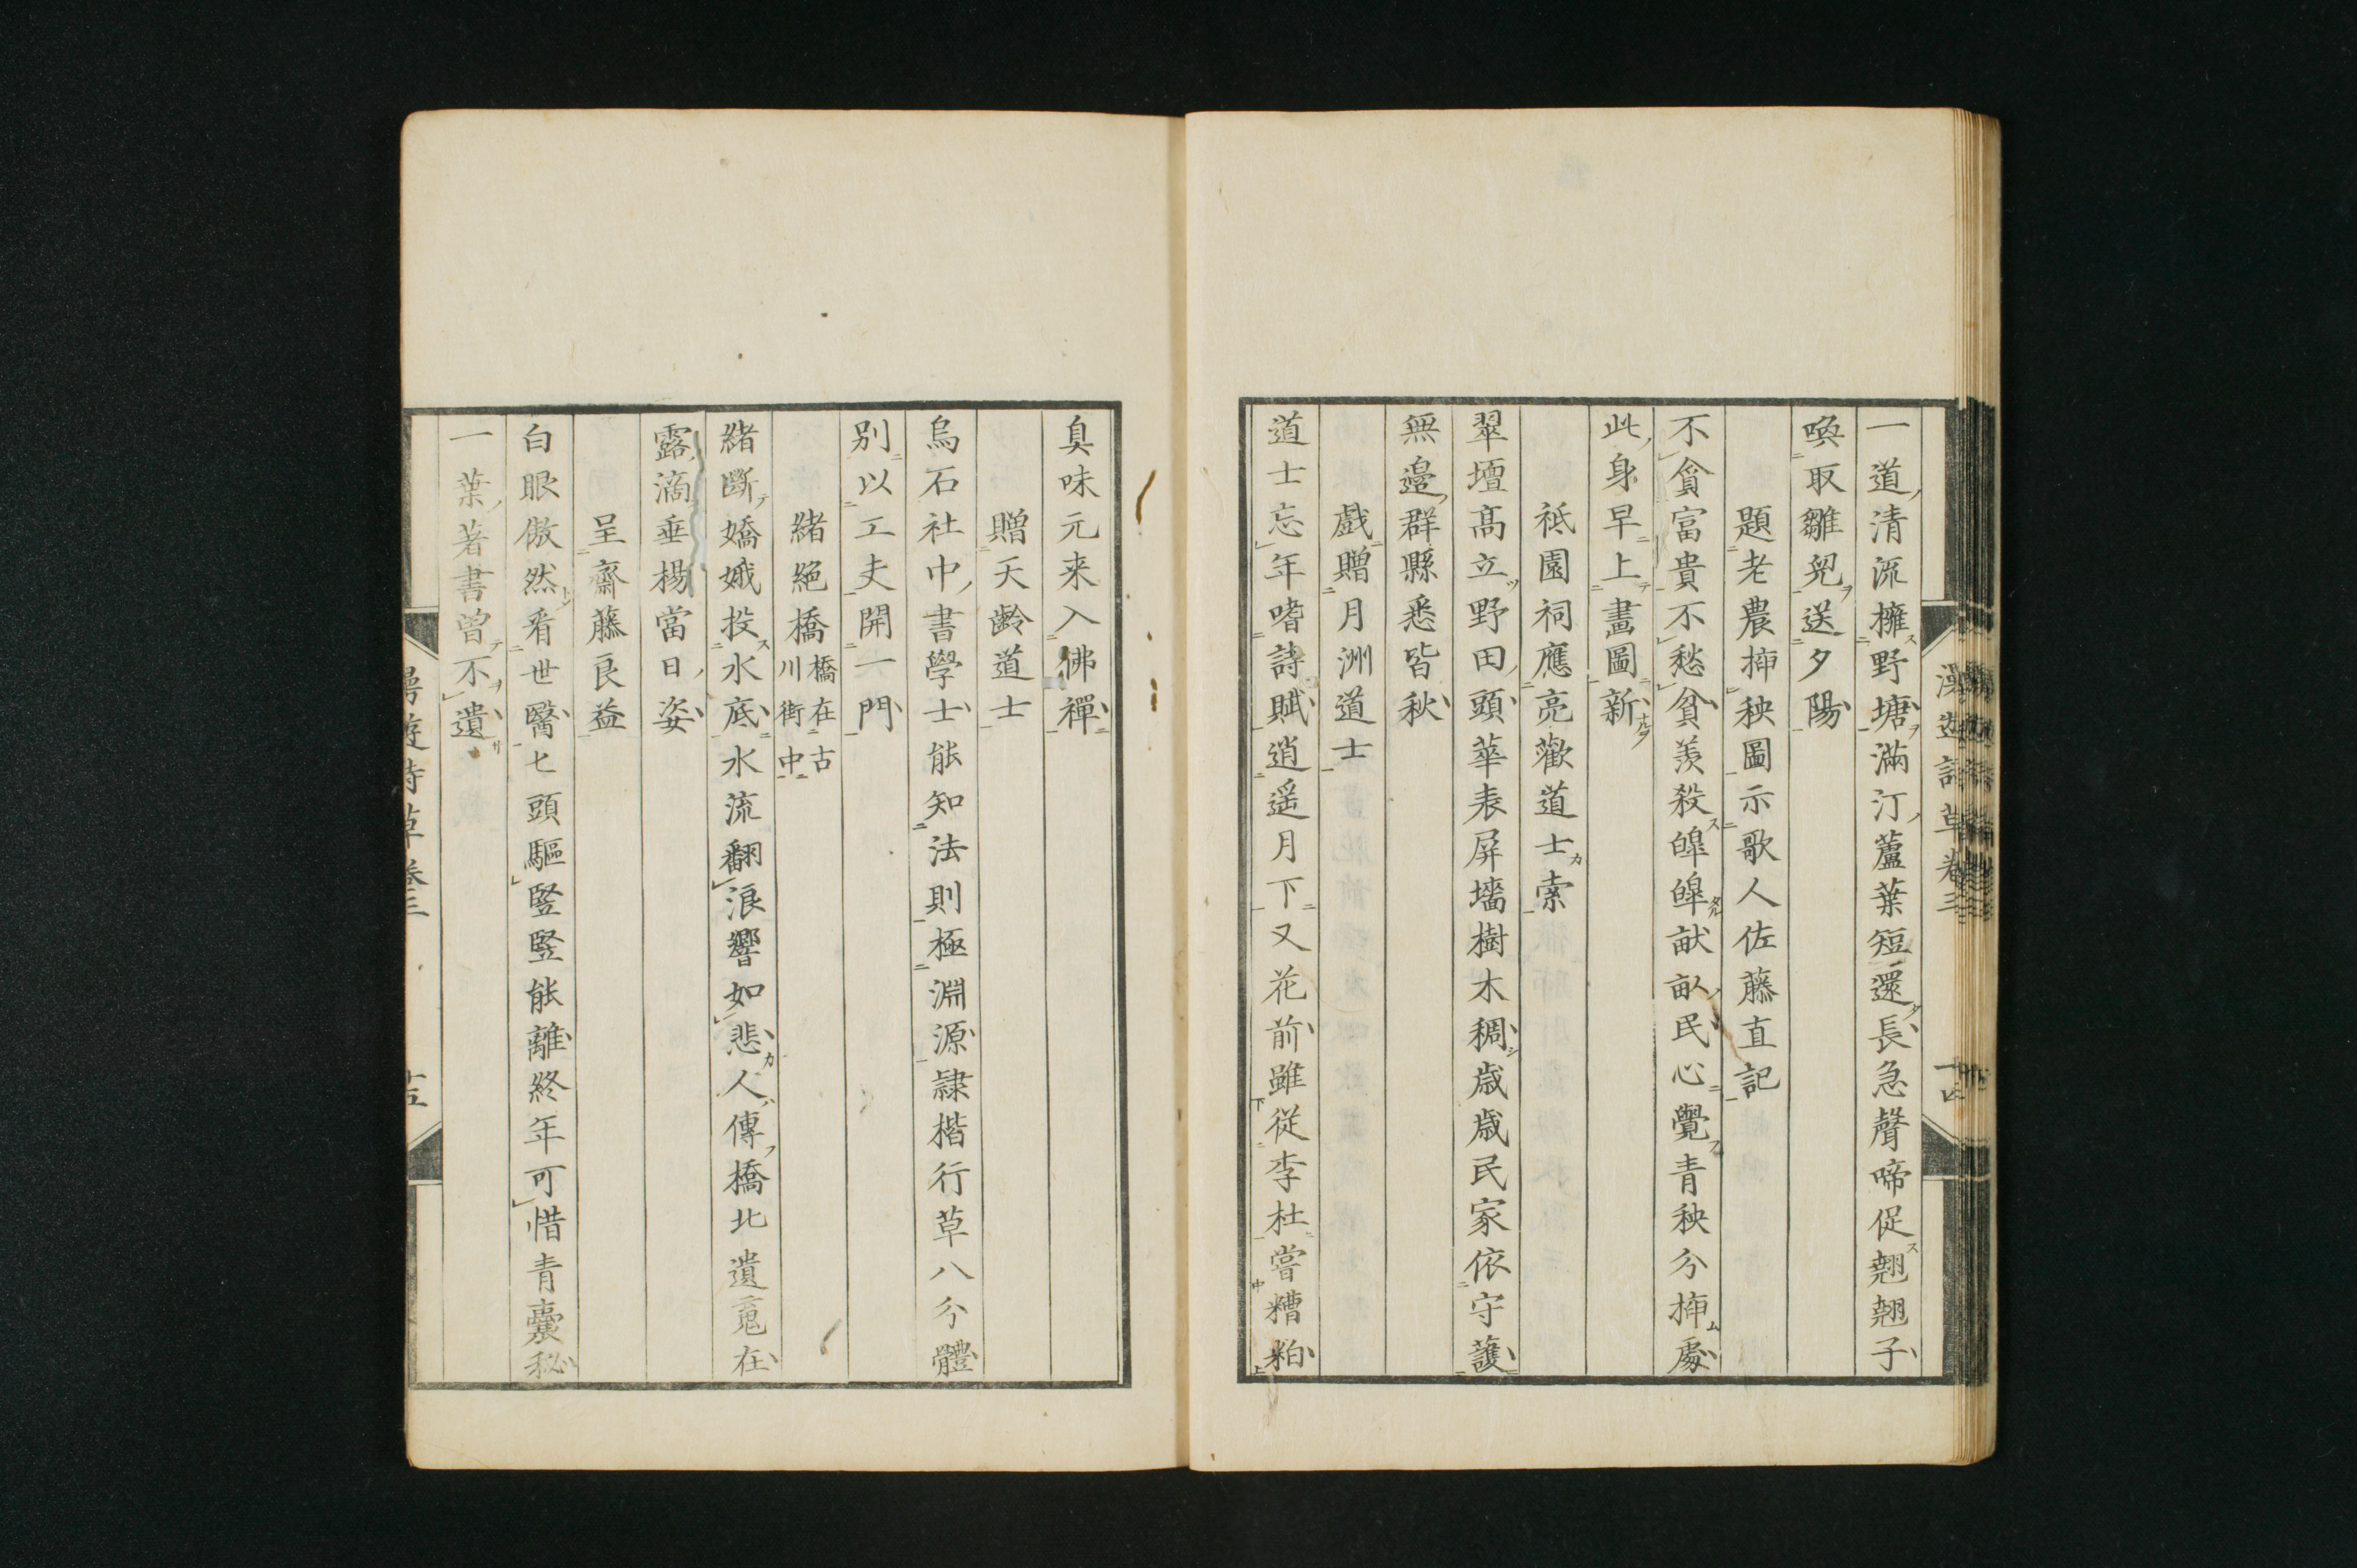 一道清流擁野塘滿汀蘆葉短還長急聲啼促翹翹子
喚取雛兒送夕陽
題老農揷秧圖示歌人佐藤直記
不貪富貴不愁貧羨殺皥皥畎畝民心覺青秧分揷處
此身早上畫圖新
祗園祠應亮歡道士索
翠壇高立野田頭華表屏墻樹木稠歲歲民家依守護
無邊群縣悉皆秋
戲贈月洲道士
道士忘年嗜詩賦逍遥月下又花前雖從李杜嘗糟粕
臭味元来入佛禪
贈天齡道士
烏石社中書學士能知法則極淵源隷楷行草八分體
別以工夫開一門
緒絕橋橋在古川街中
緒斷嬌娥投水底水流翻浪響如悲人傳橋北遺蒐在
露滴垂楊當日姿
呈齋藤良益
白眼傲然看世醫七頭驅竪竪能離終年可惜青囊秘
一葉著書曾不遺
漫遊詩草卷三
十五